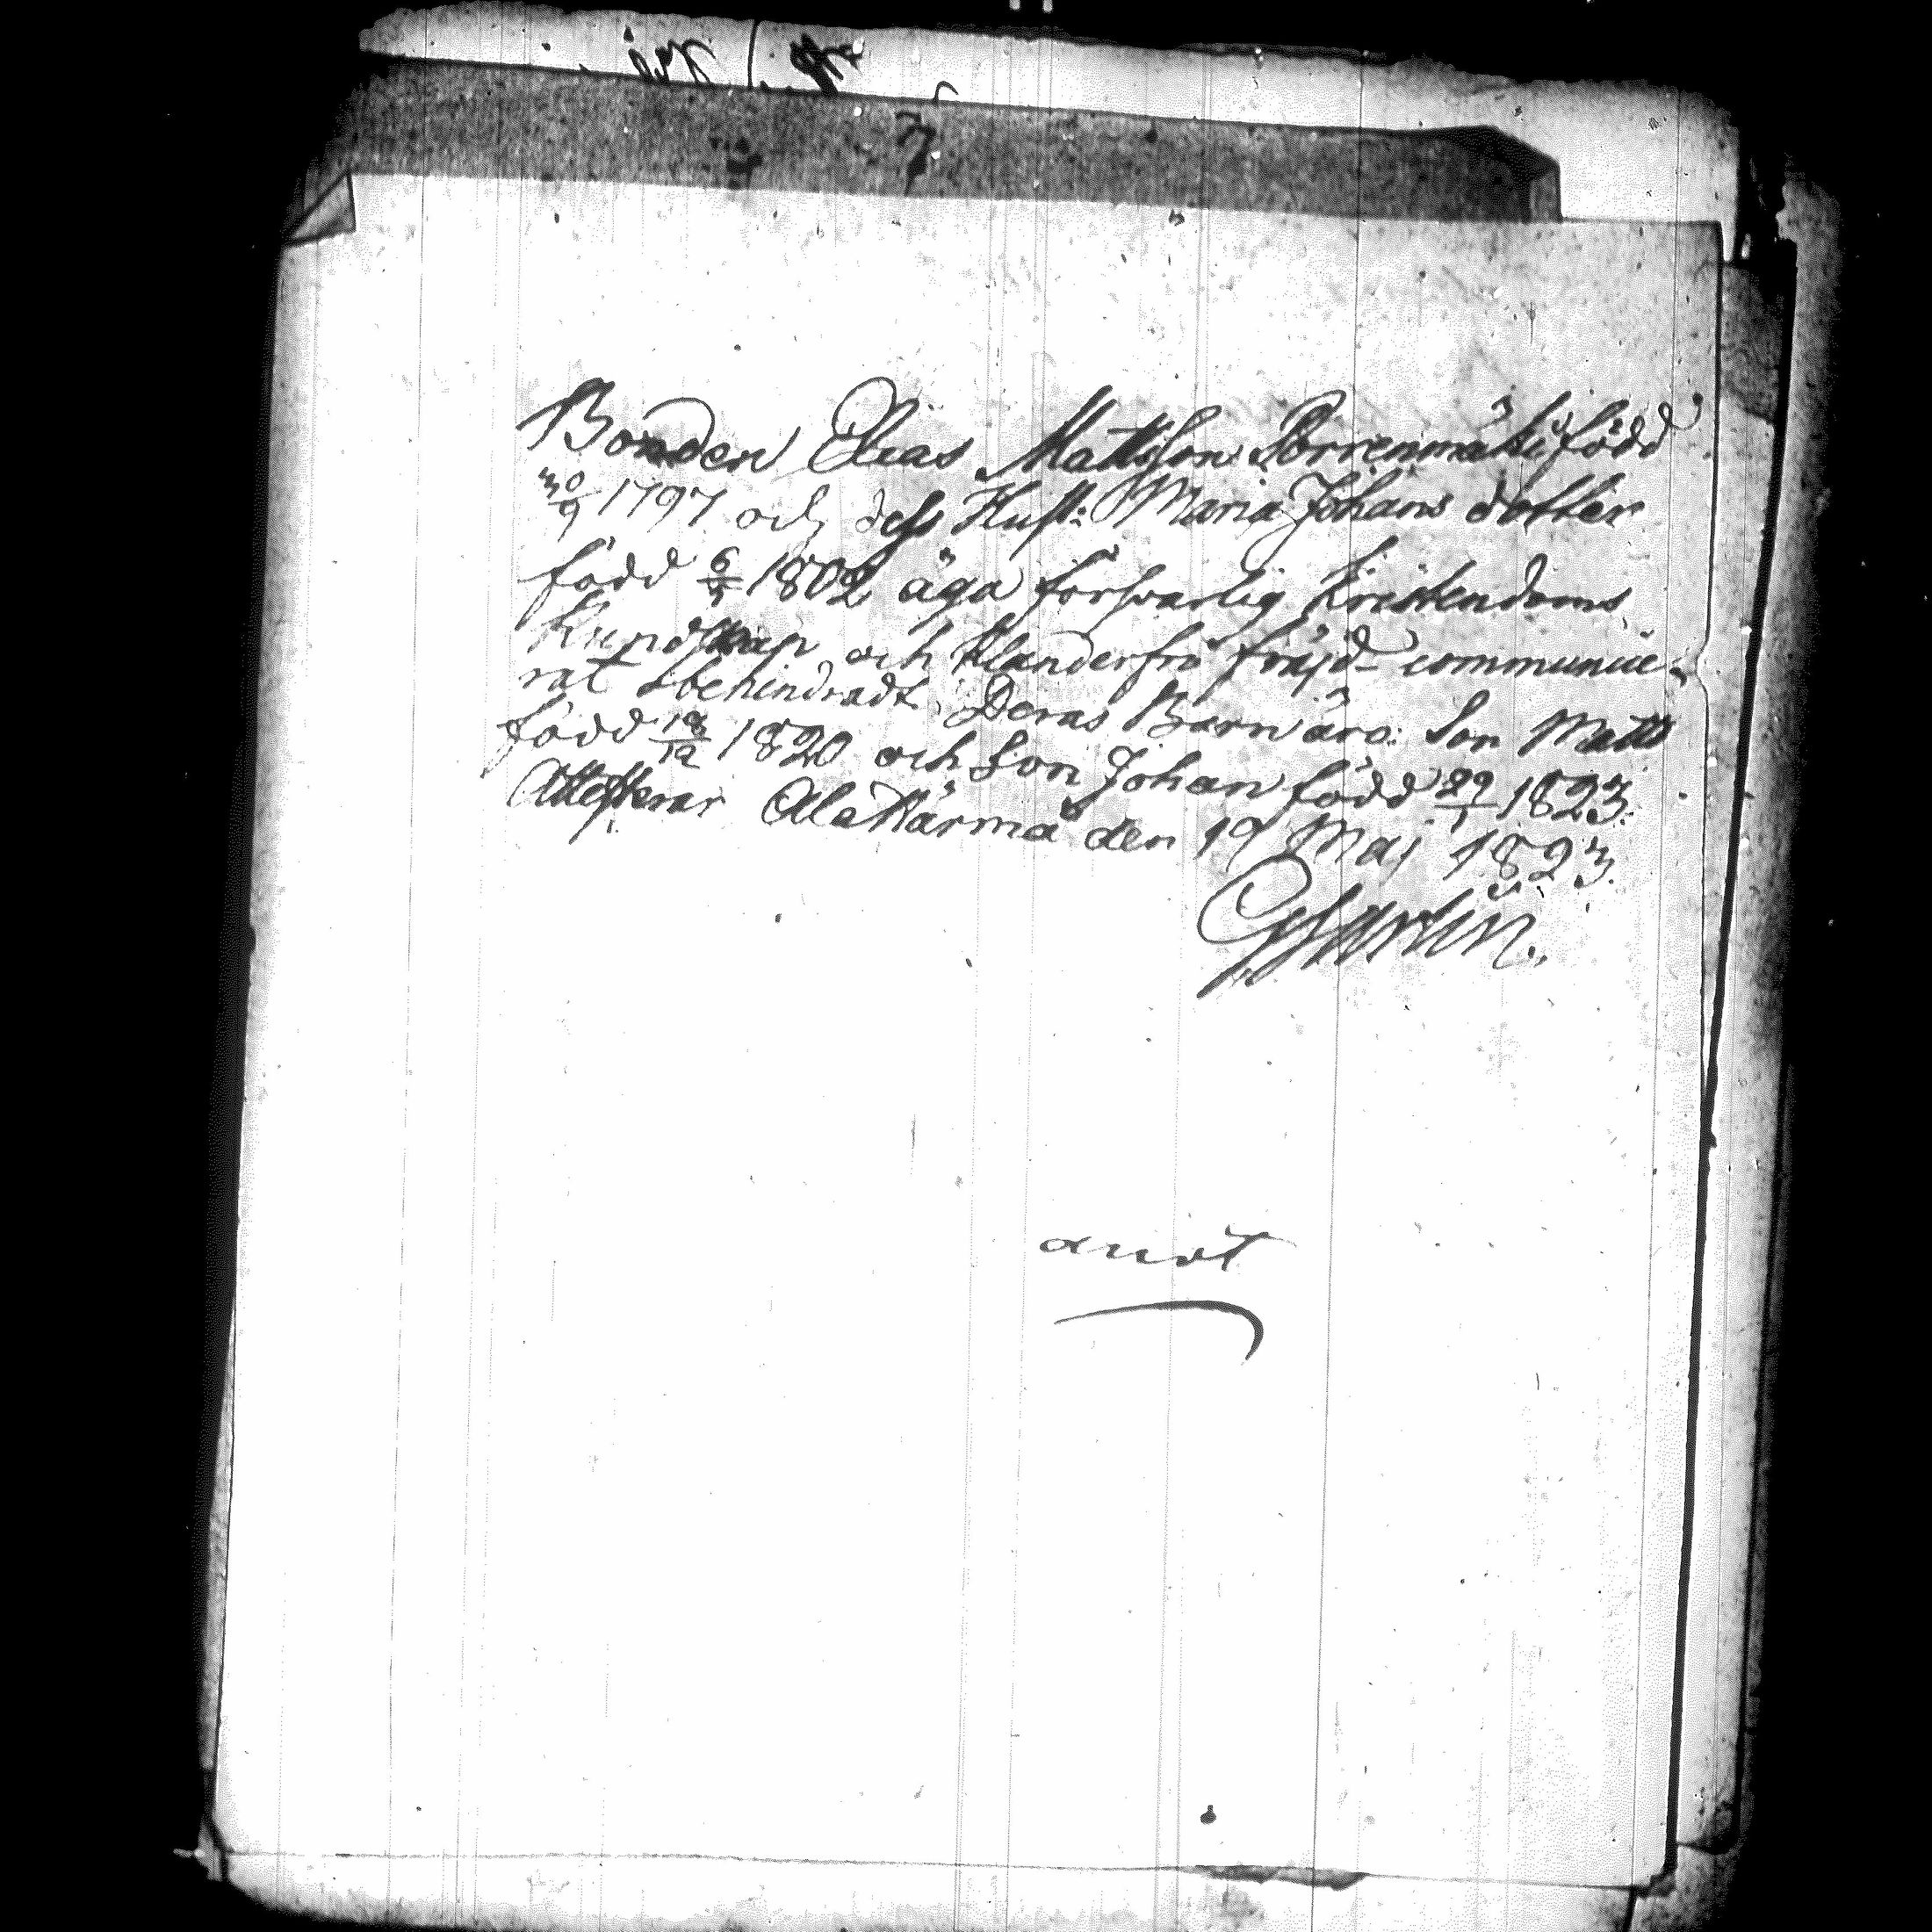 Bonden Elias Mattsson Porrenmäki född
30/9 1797 och dess Hust: Maria Johans dotter
född 6/3 1802 äga försvarlig Kristendoms
Kundskap och klanderfri frejd communice-
rat obehindradt. Deras Barn äro: Son Matts
född 18/12 1820 och Son Johan född 29/1 1823.
Attesterar AlaKärmä den 19 Maj 1823.